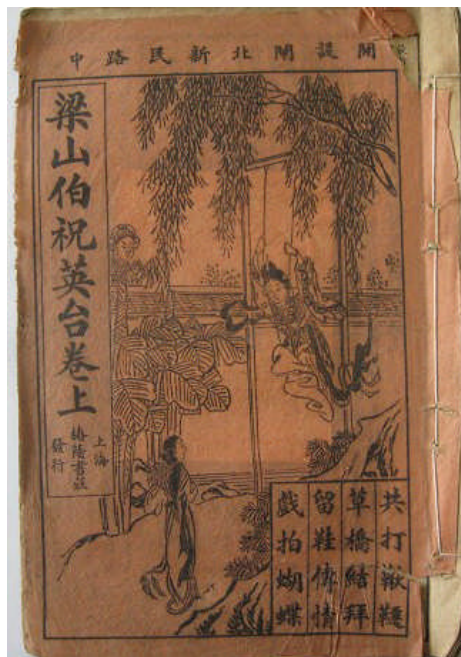 開設閘北新民路中
梁山伯祝英台卷上
上海
椿蔭書莊
發行
共打鞦韆
草橋結拜
留鞋傳情
戯拍蝴蝶